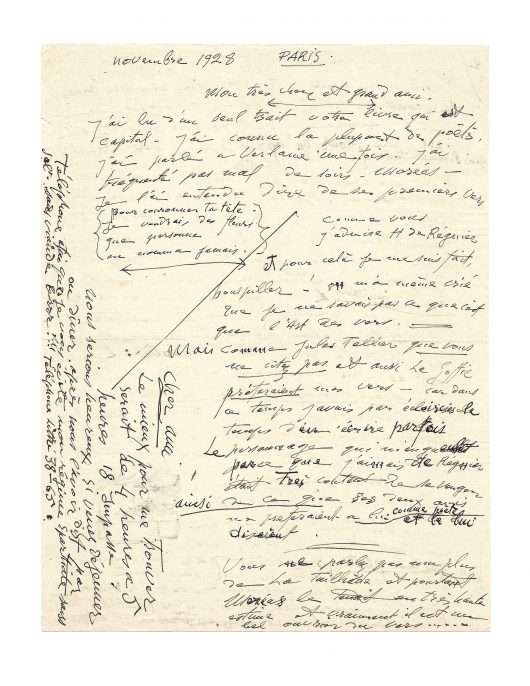 novembre 1928 PARIS.
Mon très cher et grand ami.
j'ai lu d'un seul trait votre livre qui est
capital. j'ai connu la plupart des poètes.
j'ai parlé à Verlaine une fois. j'ai
fréquenté pas mal de soirs - Moréas -
Je l'ai entendu dire de ses premiers vers
pour couronner ta tête
je voudrais des fleurs
que personne
ne nomma jamais.
comme vous
j'admire H de Régnier
et pour cela je me suis fait
houspiller ! on m'a même crié
que je ne savais pas ce que c'est
que l'Art des vers.
Mais comme Jules Tellier que vous
ne citez pas et aussi Le Goffic
préféraient mes vers - car dans
ce temps j'avais par
temps d'en écrire parfois
Le personnage qui
parce que j'aimais de Régnier
était très content de se venger
ainsi de ce que ces deux amis
me préféraient à lui comme poète
et le lui
disaient.
Vous ne parlez pas non plus
de La Tailhède et pourtant
Moréas le tenait en très haute
estime et vraiment il est un
bel ouvrier du vers.....
Cher ami.
Le mieux pour me trouver
serait de 4 heures à 5
heures 18 Impasse
Nous serions heureux si vous déjeuner
ou dîner après nous l'avoir dit par
Téléphone que je vous évite mon régime spartiate sans
sel. sans viande Bière !!! Téléphone 38-65.